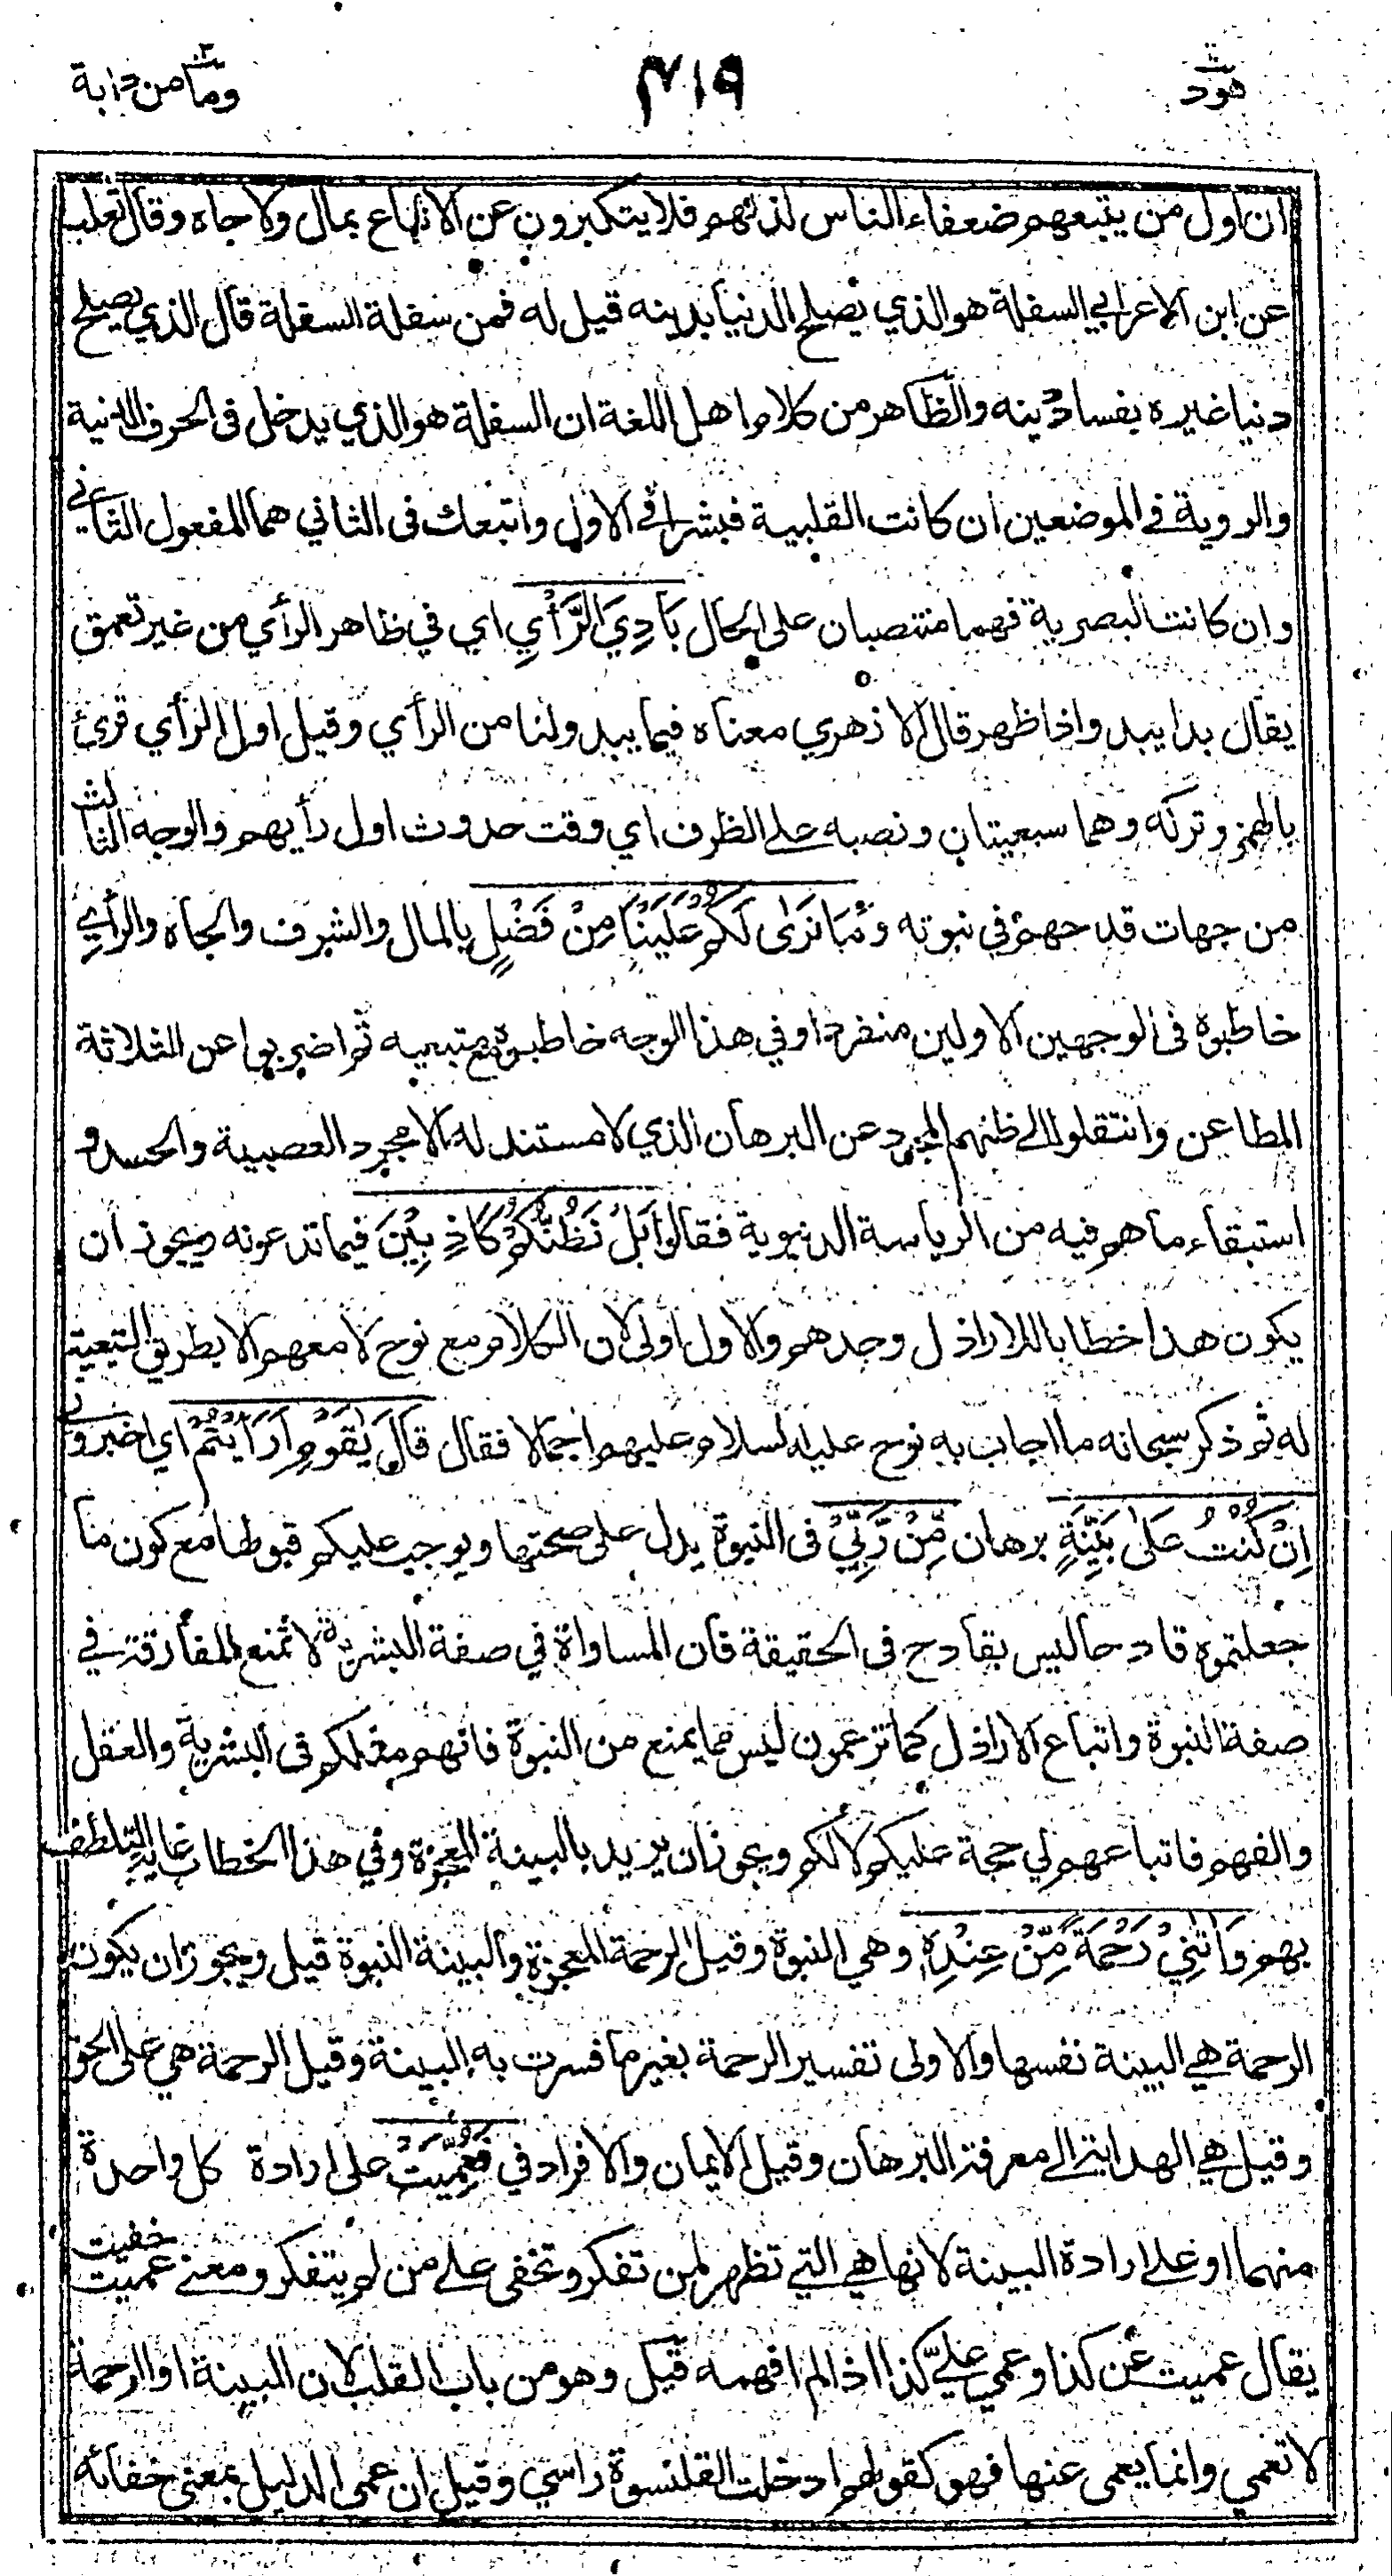 هود
٤١٩
ومامن دابة
ان اول من يتبعهم ضعفاء الناس لذلتهم فلا يتكبرون عن الاتباع بمال ولا جاه وقال ثعلب
عن ابن الاعرابي السفلة هو الذي يصلح الدنيا بدينه قيل له فمن سفلة السفلة قال الذي يصلح
دنيا غيره بفساد دينه والظاهر من كلام اهل اللغة ان السفلة هو الذي يدخل في الحرف الدنية
والروية في الموضعين ان كانت القلبية فبشرا في الاول واتبعك في الثاني هما المفعول الثاني
وان كانت البصرية فهما منتصبان على الحال بَادِيَ الرَّأْيِ اي في ظاهر الرأي من غير تعمق
يقال بدا يبدو اذا ظهر قال الازهري معناه فيما يبدو لنا من الرأي وقيل اول الرأي قرئ
بالهمز وتركه وهما سبعيتان ونصبه على الظرف اي وقت حدوث اول رأيهم والوجه الثالث
من جهات قدحهم في نبوته وَمَا نَرٰى لَكُمْ عَلَيْنَا مِنْ فَضْلٍ بالمال والشرف والجاه والرأي
خاطبوه في الوجهين الاولين منفردا وفي هذا الوجه خاطبوه مع متبعيه ثم اضربوا عن الثلاثة
المطاعن وانتقلوا الى ظنهم المجرد عن البرهان الذي لا مستند له الا مجرد العصبية والحسد و
استبقاء ما هم فيه من الرياسة الدنيوية فقالوا بَلْ نَظُنُّكُمْ كَاذِبِيْنَ فيما تدعونه ويجوز ان
يكون هذا خطابا للاراذل وحدهم والاول اولى لان الكلام مع نوح لا معهم الا بطريق التبعية
له ثم ذكر سبحانه ما اجاب به نوح عليه السلام عليهم اجمالا فقال قَالَ يٰقَوْمِ اَرَاَيْتُمْ اي اخبروني
اِنْ كُنْتُ عَلٰى بَيِّنَةٍ برهان مِّنْ رَّبِّيْ في النبوة يدل على صحتها ويوجب عليكم قبولها مع كون ما
جعلتموه قادحا ليس بقادح في الحقيقة فان المساواة في صفة البشرية لا تمنع المفارقة في
صفة النبوة واتباع الاراذل كما تزعمون ليس مما يمنع من النبوة فانهم مثلكم في البشرية والعقل
والفهم فاتباعهم لي حجة عليكم لا لكم ويجوز ان يريد بالبينة المعجزة وفي هذا الخطاب غاية التلطف
بهم وَاٰتٰنِيْ رَحْمَةً مِّنْ عِنْدِهٖ وهي النبوة وقيل الرحمة المعجزة والبينة النبوة قيل ويجوز ان يكون
الرحمة هي البينة نفسها والاولى تفسير الرحمة بغير ما فسرت به البينة وقيل الرحمة هي على الخلق
وقيل هي الهداية الى معرفة البرهان وقيل الايمان والافراد في فَعُمِّيَتْ على ارادة كل واحدة
منهما او على ارادة البينة لانها هي التي تظهر لمن تفكر وتخفى على من لم يتفكر ومعنى عميت خفيت
يقال عميت عن كذا وعمي علي كذا اذا لم افهمه قيل وهو من باب القلب لان البينة او الرحمة
لا تعمي وانما يعمى عنها فهو كقولهم ادخلت القلنسوة راسي وقيل ان عمى الدليل بمعنى خفائه